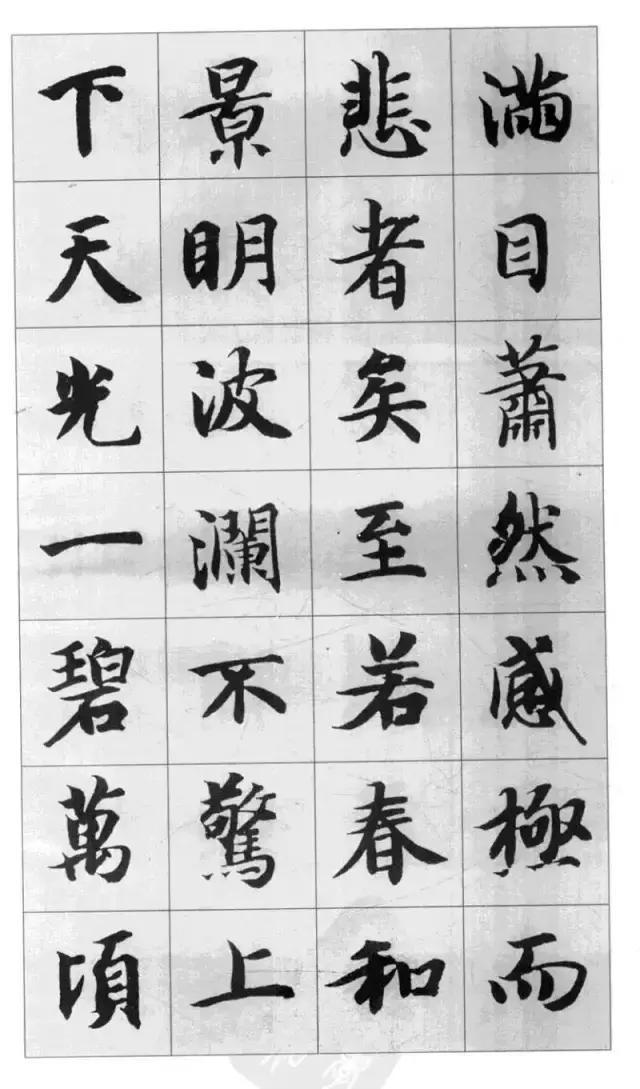 滿目蕭然感極而
悲者矣至若春和
景明波瀾不驚上
下天光一碧萬頃